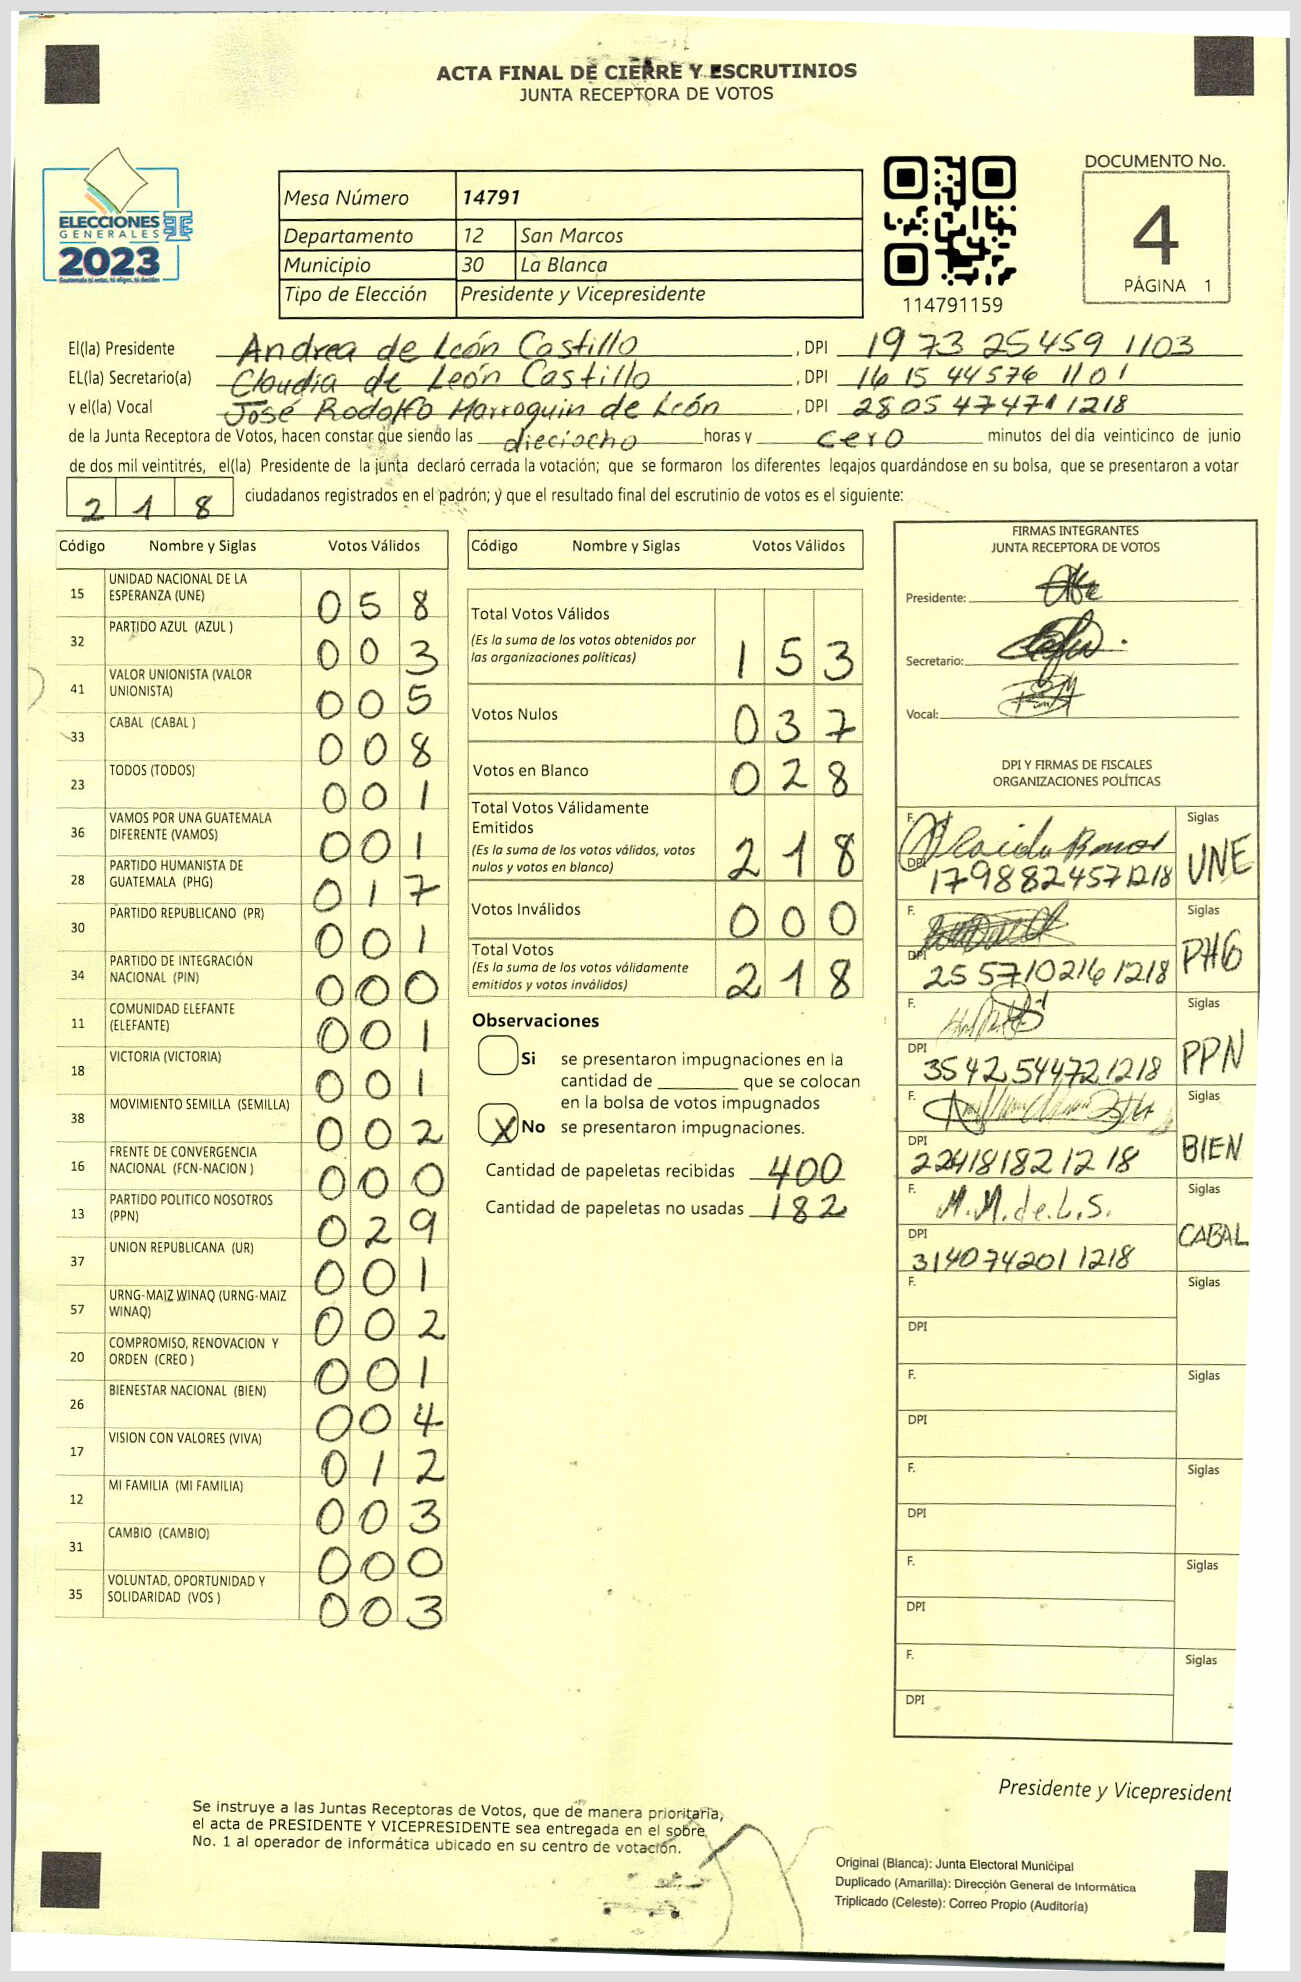 ACTA FINAL DE CIERRE Y ESCRUTINIOS
JUNTA RECEPTORA DE VOTOS
ELECCIONES
GENERALES
2023
Mesa Número 14791
Departamento 12 San Marcos
Municipio 30 La Blanca
Tipo de Elección Presidente y Vicepresidente
114791159
DOCUMENTO No.
4
PÁGINA 1
El(la) Presidente Andrea de León Castillo, DPI 1973 25459 1103
EL(la) Secretario(a) Claudia de León Castillo, DPI 1615 44576 1101
y el(la) Vocal José Rodolfo Marroquin de León, DPI 2805 47471 1218
de la Junta Receptora de Votos, hacen constar que siendo las dieciocho horas y cero minutos del día veinticinco de junio
de dos mil veintitrés, el(la) Presidente de la junta declaró cerrada la votación; que se formaron los diferentes legajos quardándose en su bolsa, que se presentaron a votar
218 ciudadanos registrados en el padrón; y que el resultado final del escrutinio de votos es el siguiente:
Código Nombre y Siglas Votos Válidos
15 UNIDAD NACIONAL DE LA ESPERANZA (UNE) 058
32 PARTIDO AZUL (AZUL ) 003
41 VALOR UNIONISTA (VALOR UNIONISTA) 005
33 CABAL (CABAL ) 008
23 TODOS (TODOS) 001
36 VAMOS POR UNA GUATEMALA DIFERENTE (VAMOS) 001
28 PARTIDO HUMANISTA DE GUATEMALA (PHG) 017
30 PARTIDO REPUBLICANO (PR) 001
34 PARTIDO DE INTEGRACIÓN NACIONAL (PIN) 000
11 COMUNIDAD ELEFANTE (ELEFANTE) 001
18 VICTORIA (VICTORIA) 001
38 MOVIMIENTO SEMILLA (SEMILLA) 002
16 FRENTE DE CONVERGENCIA NACIONAL (FCN-NACION ) 000
13 PARTIDO POLITICO NOSOTROS (PPN) 029
37 UNION REPUBLICANA (UR) 001
57 URNG-MAIZ WINAQ (URNG-MAIZ WINAQ) 002
20 COMPROMISO, RENOVACION Y ORDEN (CREO ) 001
26 BIENESTAR NACIONAL (BIEN) 004
17 VISION CON VALORES (VIVA) 012
12 MI FAMILIA (MI FAMILIA) 003
31 CAMBIO (CAMBIO) 000
35 VOLUNTAD, OPORTUNIDAD Y SOLIDARIDAD (VOS ) 003
Código Nombre y Siglas Votos Válidos
Total Votos Válidos 153
(Es la suma de los votos obtenidos por
las organizaciones políticas)
Votos Nulos 037
Votos en Blanco 028
Total Votos Válidamente
Emitidos 218
(Es la suma de los votos válidos, votos
nulos y votos en blanco)
Votos Inválidos 000
Total Votos 218
(Es la suma de los votos válidamente
emitidos y votos inválidos)
Observaciones
Si se presentaron impugnaciones en la
cantidad de ________ que se colocan
en la bolsa de votos impugnados
X No se presentaron impugnaciones.
Cantidad de papeletas recibidas 400
Cantidad de papeletas no usadas 182
FIRMAS INTEGRANTES
JUNTA RECEPTORA DE VOTOS
Presidente:
Secretario:
Vocal:
DPI Y FIRMAS DE FISCALES
ORGANIZACIONES POLÍTICAS
F. Siglas
DPI 1798824571218 UNE
F. Siglas
DPI 2557102161218 PHG
F. Siglas
DPI 3542544721218 PPN
F. Siglas
DPI BIEN
F. M.M.de.L.S. Siglas
DPI 3140742011218 CABAL
F. Siglas
DPI
F. Siglas
DPI
F. Siglas
DPI
F. Siglas
DPI
F. Siglas
DPI
Presidente y Vicepresident
Se instruye a las Juntas Receptoras de Votos, que de manera prioritaria,
el acta de PRESIDENTE Y VICEPRESIDENTE sea entregada en el sobre
No. 1 al operador de informática ubicado en su centro de votación.
Original (Blanca): Junta Electoral Municipal
Duplicado (Amarilla): Dirección General de Informática
Triplicado (Celeste): Correo Propio (Auditoría)